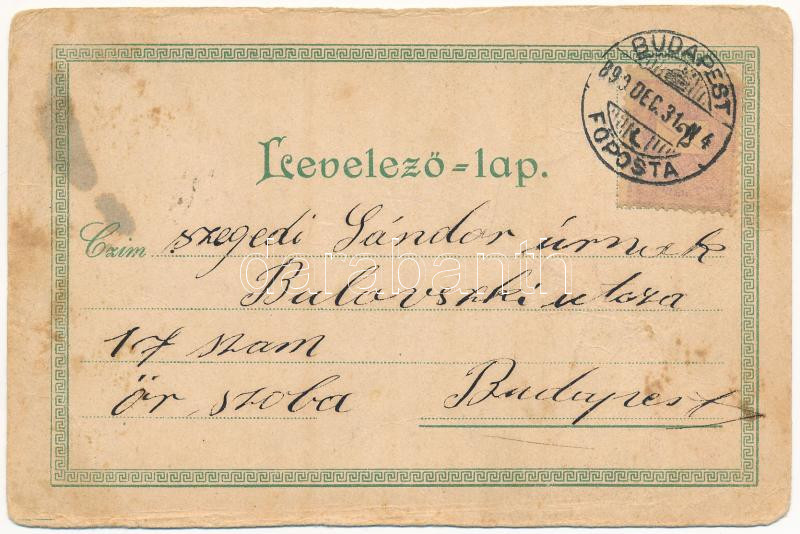 BUDAPEST
DEC. 31.
FŐPOSTA
Levelező=lap.
Czim szegedi Sándor úrnak
darabanth
Bulovszki utcza
17 szam
őr szoba Budapest